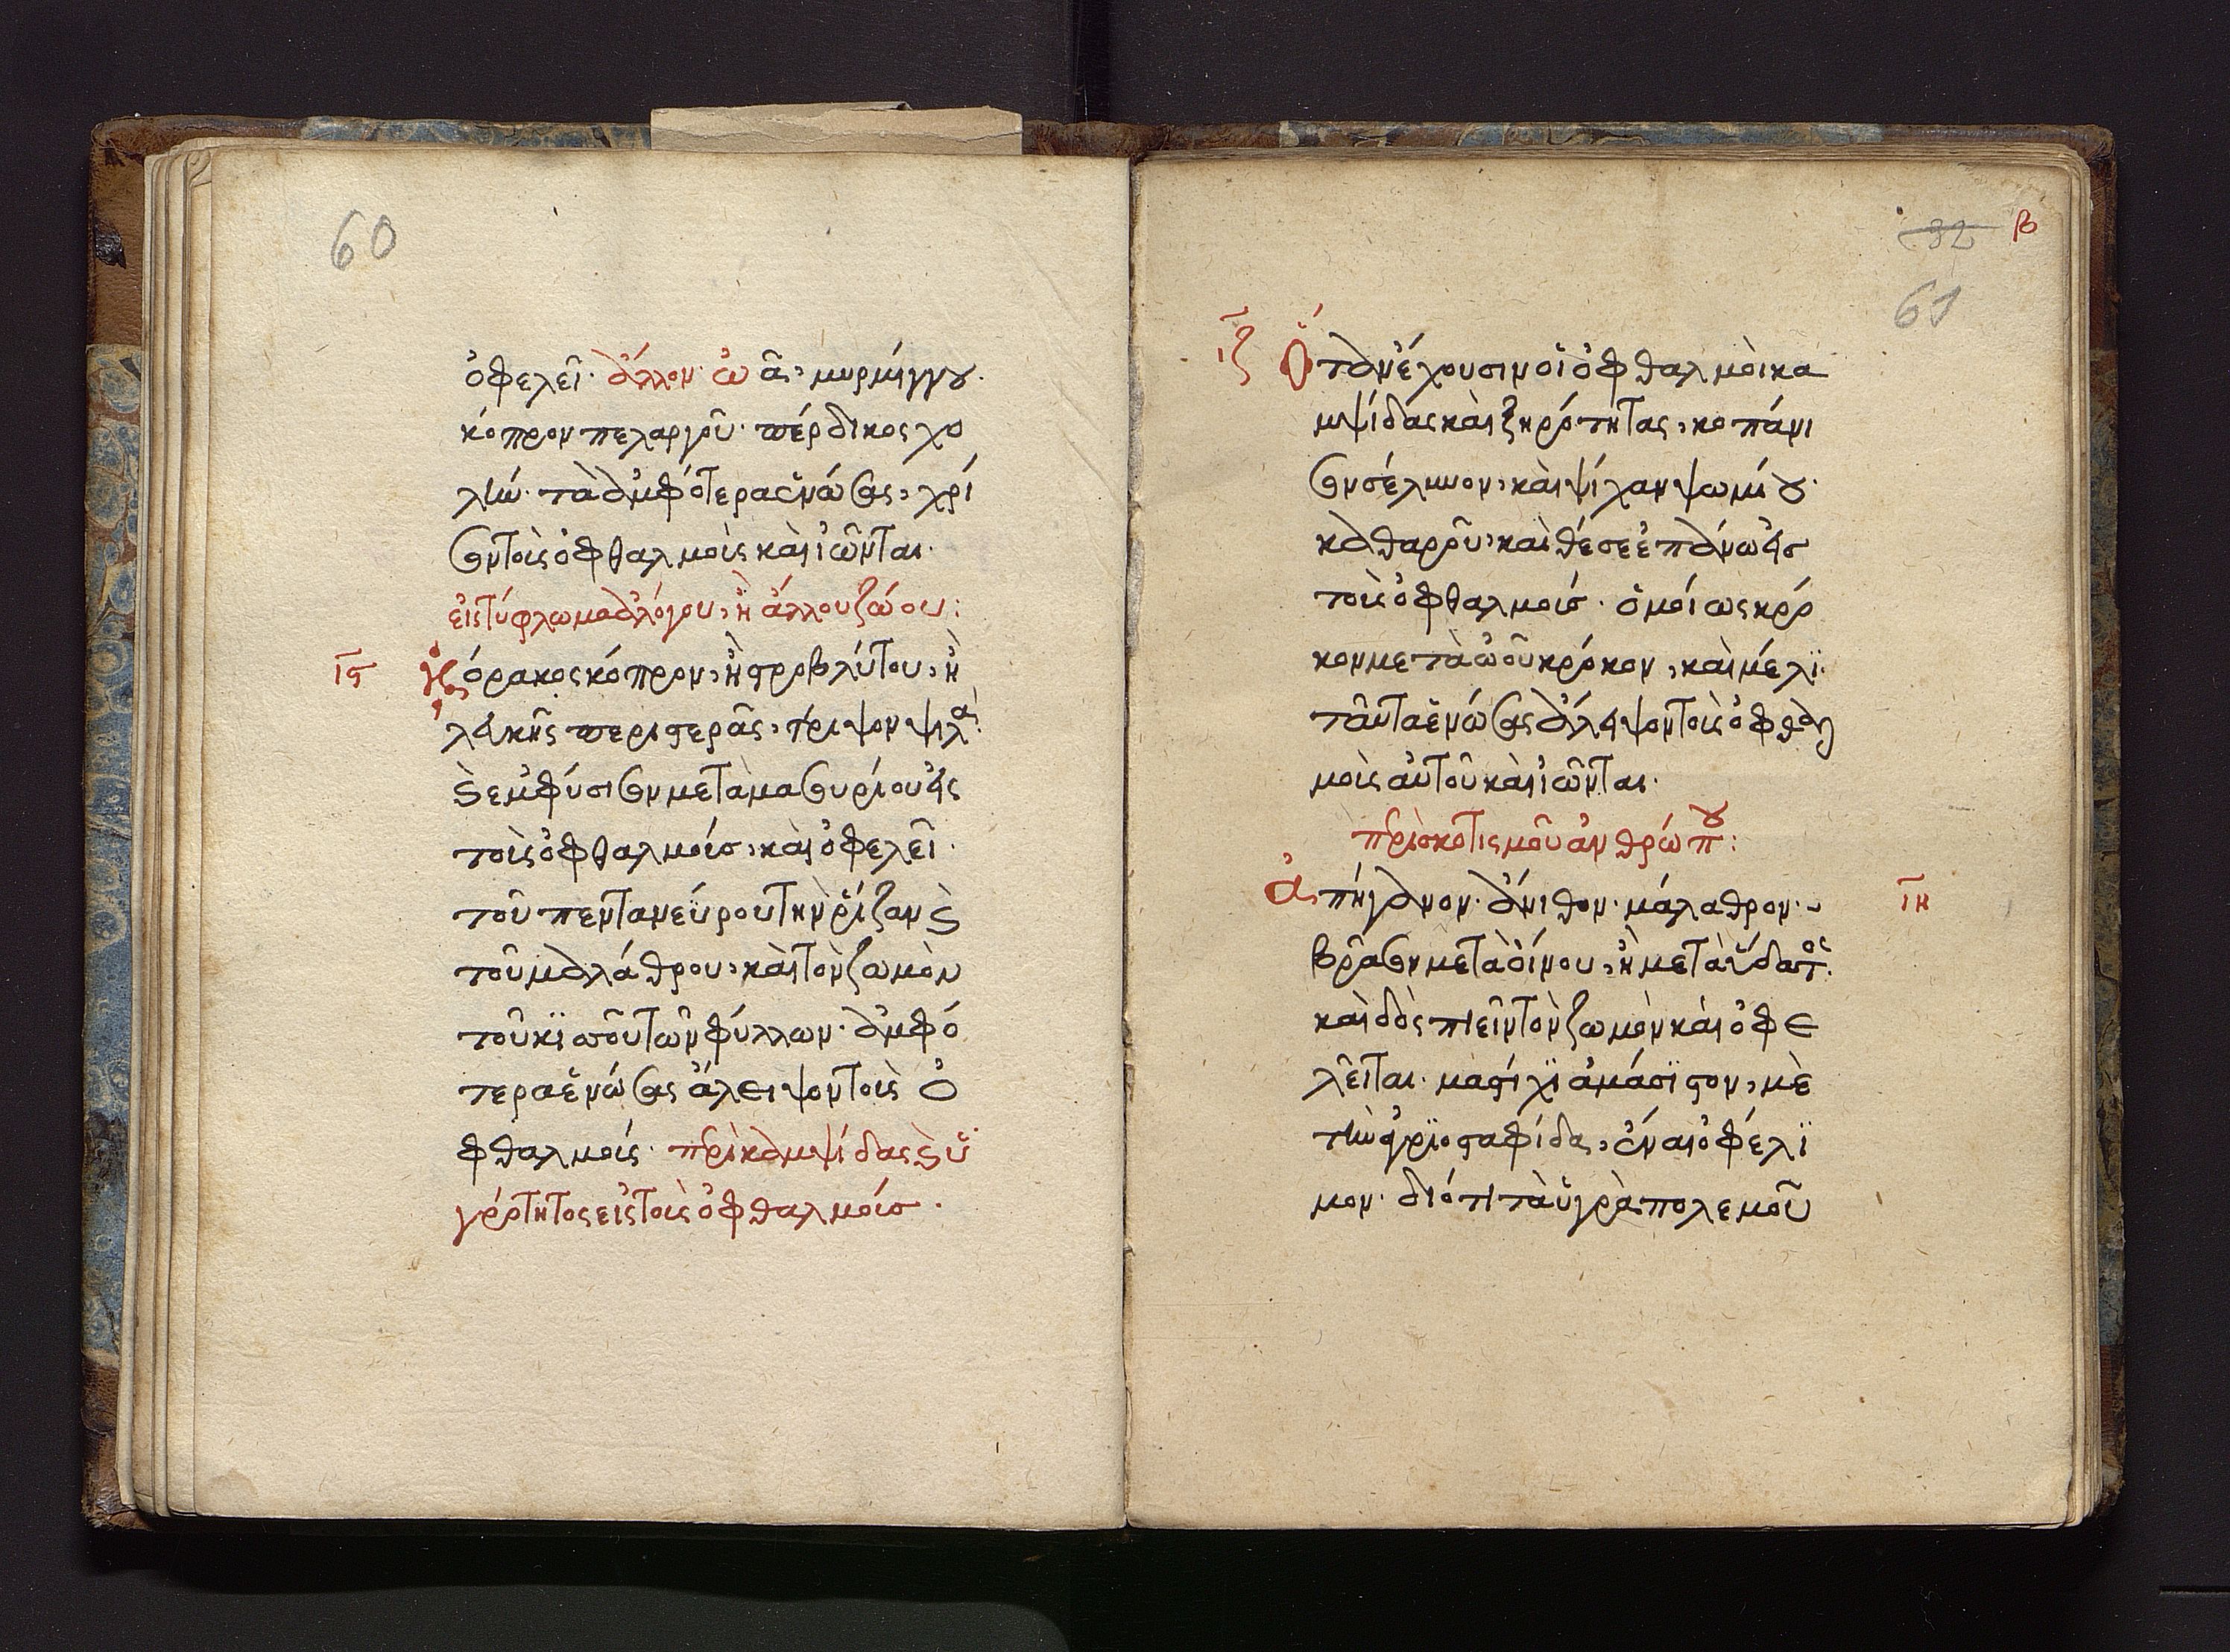 60
ὀφελεῖ· ἄλλον· ὠὰ, μυρμήγγου·
κόπρον πελαργοῦ· πέρδικος χο
λήν· τὰ ἀμφότερα ἑνώσας, χρί
σον τοὶς ὀφθαλμοὶς καὶ ἰῶνται·
εἰς τύφλωμα ἀλόγου, ἢ ἄλλου ζώου:
ις Κόρακος κόπρον, ἢ στροβλύτου, ἢ
λευκῆς περιστερᾶς, τρίψον ψιλὰ·
καὶ ἐμφύσισον μετὰ μασουρίου εἰς
τοὶς ὀφθαλμοίσ, καὶ ὀφελεῖ·
τοῦ πενταμεύρου τὴν ῥίζαν καὶ
τοῦ μαλάθρου, καὶ τὸν ζωμὸν
τοῦ κϊσσοῦ τῶν φύλλων· ἀμφό
τερα ἑνώσας ἄλειψον τοὶς ὀ
φθαλμοίς· περὶ καμψίδας καὶ ὑ
γρότητος εἰς τοὶς ὀφθαλμοίσ·
32 β
61
ιζ Ὅταν ἔχουσιν οἱ ὀφθαλμοὶ κα
μψίδας καὶ ξηρότητας, κοπάνι
σον σέλινον, καὶ ψίχαν ψωμίου
καθαροῦ, καὶ θέσε ἐπάνω εἰσ
τοὶς ὀφθαλμοίσ· ὁμοίως κρό
κον μετὰ ὠοῦ κρόκον, καὶ μέλϊ·
ταῦτα ἑνώσας ἄλειψον τοὶς ὀφθαλ
μοὶς αὐτοῦ καὶ ἰῶνται·
περὶ σκοτισμοῦ ἀνθρώπου:
Ἀπήγανον· ἄνιθον· μάλαθρον· ιη
βράσον μετὰ οἴνου, ἢ μετὰ ὕδατος·
καὶ δὸς πιεῖν τὸν ζωμὸν καὶ ὀφε
λεῖται· μαστίχϊ ἀμάσϊστον, μὲ
τὴν ἀγρϊοσταφίδα, ἔναι ὀφέλϊ
μον· διότι τὰ ὑγρὰ πολεμοῦ